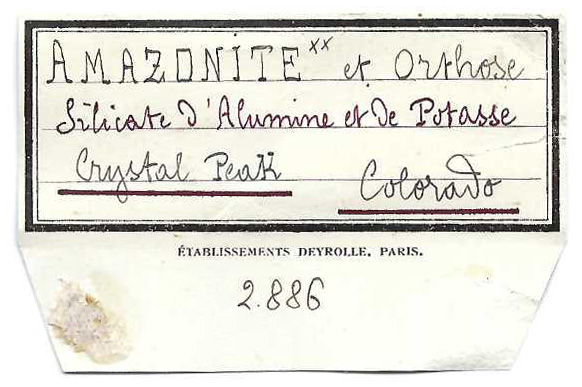 AMAZONITE xx et Orthose
Silicate d'Alumine et de Potasse
Crystal Peak Colorado
ÉTABLISSEMENTS DEYROLLE, PARIS.
2.886